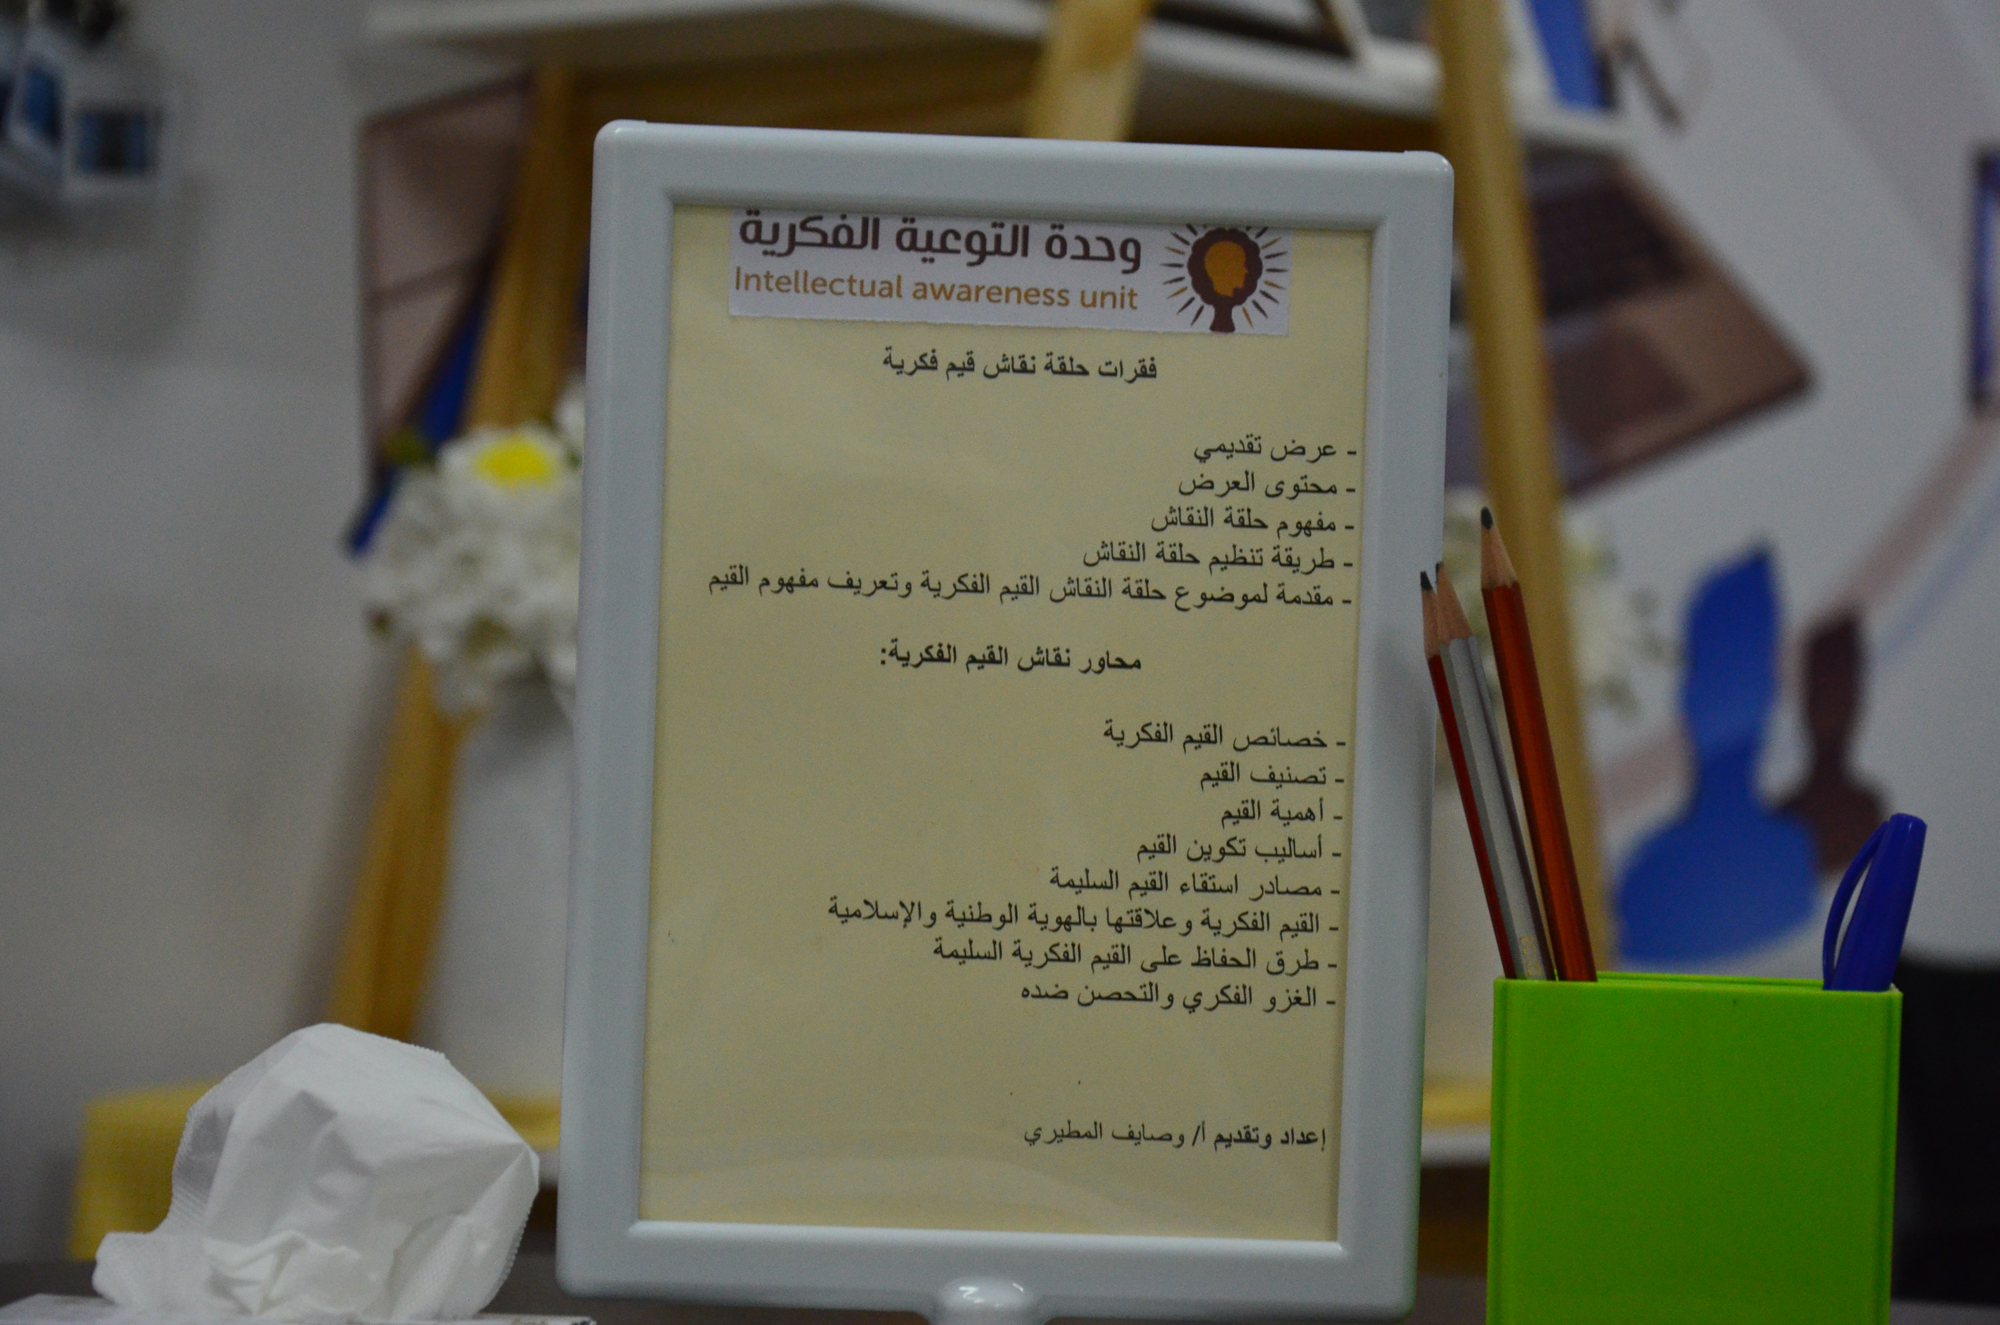 وحدة التوعية الفكرية
Intellectual awareness unit
فقرات حلقة نقاش قيم فكرية
- عرض تقديمي
- محتوى العرض
- مفهوم حلقة النقاش
- طريقة تنظيم حلقة النقاش
- مقدمة لموضوع حلقة النقاش القيم الفكرية وتعريف مفهوم القيم
محاور نقاش القيم الفكرية:
- خصائص القيم الفكرية
- تصنيف القيم
- أهمية القيم
- أساليب تكوين القيم
- مصادر استقاء القيم السليمة
- القيم الفكرية وعلاقتها بالهوية الوطنية والإسلامية
- طرق الحفاظ على القيم الفكرية السليمة
- الغزو الفكري والتحصن ضده
إعداد وتقديم أ/ وصايف المطيري